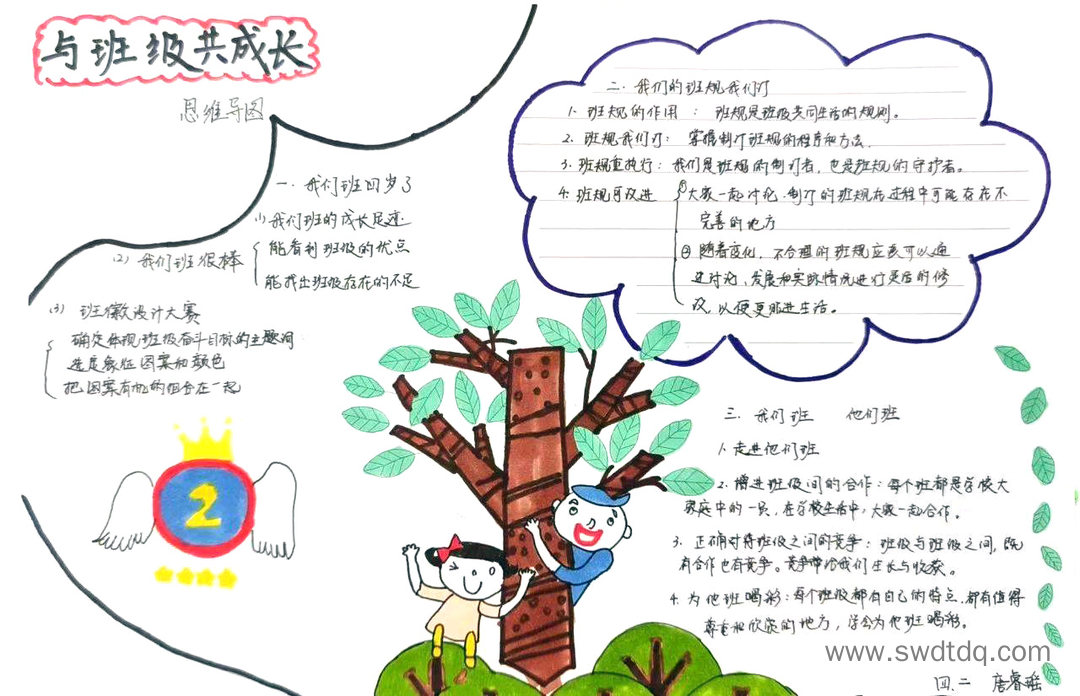 与班级共成长
思维导图
一. 我们班四岁了
(1)我们班的成长足迹
能看到班级的优点
(2) 我们班很棒
能找出班级存在的不足
(3) 班徽设计大赛
确定体现班级奋斗目标的主题词
选定象征图案和颜色
把图案有机的组合在一起
2
二. 我们的班规我们订
1. 班规的作用 : 班规是班级共同生活的规则。
2. 班规我们订: 掌握制订班规的程序和方法.
3. 班规重执行: 我们是班规的制订者, 也是班规的守护者。
4. 班规可改进 ①大家一起讨论.制订的班规在过程中可能存在不
完善的地方
②随着变化, 不合理的班规应该可以通
过讨论, 发展和实际情况进行灵活的修
改, 以便更能进生活。
三. 我们班 他们班
1. 走进他们班
2. 增进班级间的合作: 每个班都是学校大
家庭中的一员, 在学校生活中, 大家一起合作。
3. 正确对待班级之间的竞争: 班级与班级之间, 既
有合作也有竞争。竞争带给我们生长与收获。
4. 为他班喝彩: 每个班级都有自己的特点, 都有值得
尊重和欣赏的地方, 学会为他班喝彩。
www.swdtdq.com
四.二 唐睿